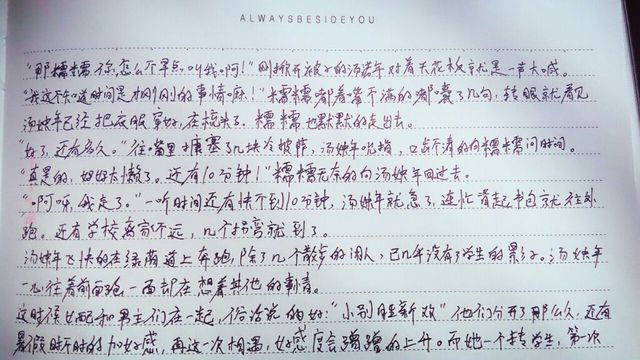 ALWAYSBESIDEYOU
"那糯糯你怎么不早点叫我啊!"刚掀开被子的汤姝年对着天花板就是一声大喊。
"我这不知道时间是刚刚的事情嘛!"糯糯嘟着嘴不满的嘟囔了几句,转眼就看见
汤姝年已经把衣服穿好,在梳头了,糯糯也默默的走出去。
"好了,还有多久。"往嘴里塞了几块冷披萨,汤姝年吃相,口齿不清的向糯糯问时间。
"真是的,姐姐太懒了。还有10分钟!"糯糯无奈的向汤姝年回过去。
"啊呀,我走了。"一听时间还有快不到10分钟,汤姝年就急了,连忙背起书包就往外
跑。还有学校离家不远,几个拐弯就到了。
汤姝年飞快的在绿荫道上奔跑,除了几个散步的闲人,已几乎没有了学生的影子。汤姝年
一儿往着前面跑一面却在想着其他的事情。
这时候女配和男主们在一起,俗话说的好:"小别胜新欢"他们分开了那么久,还有
暑假时不时的加好感,再这一次相遇,好感度会蹭蹭的上升。而她一个转学生,第一次